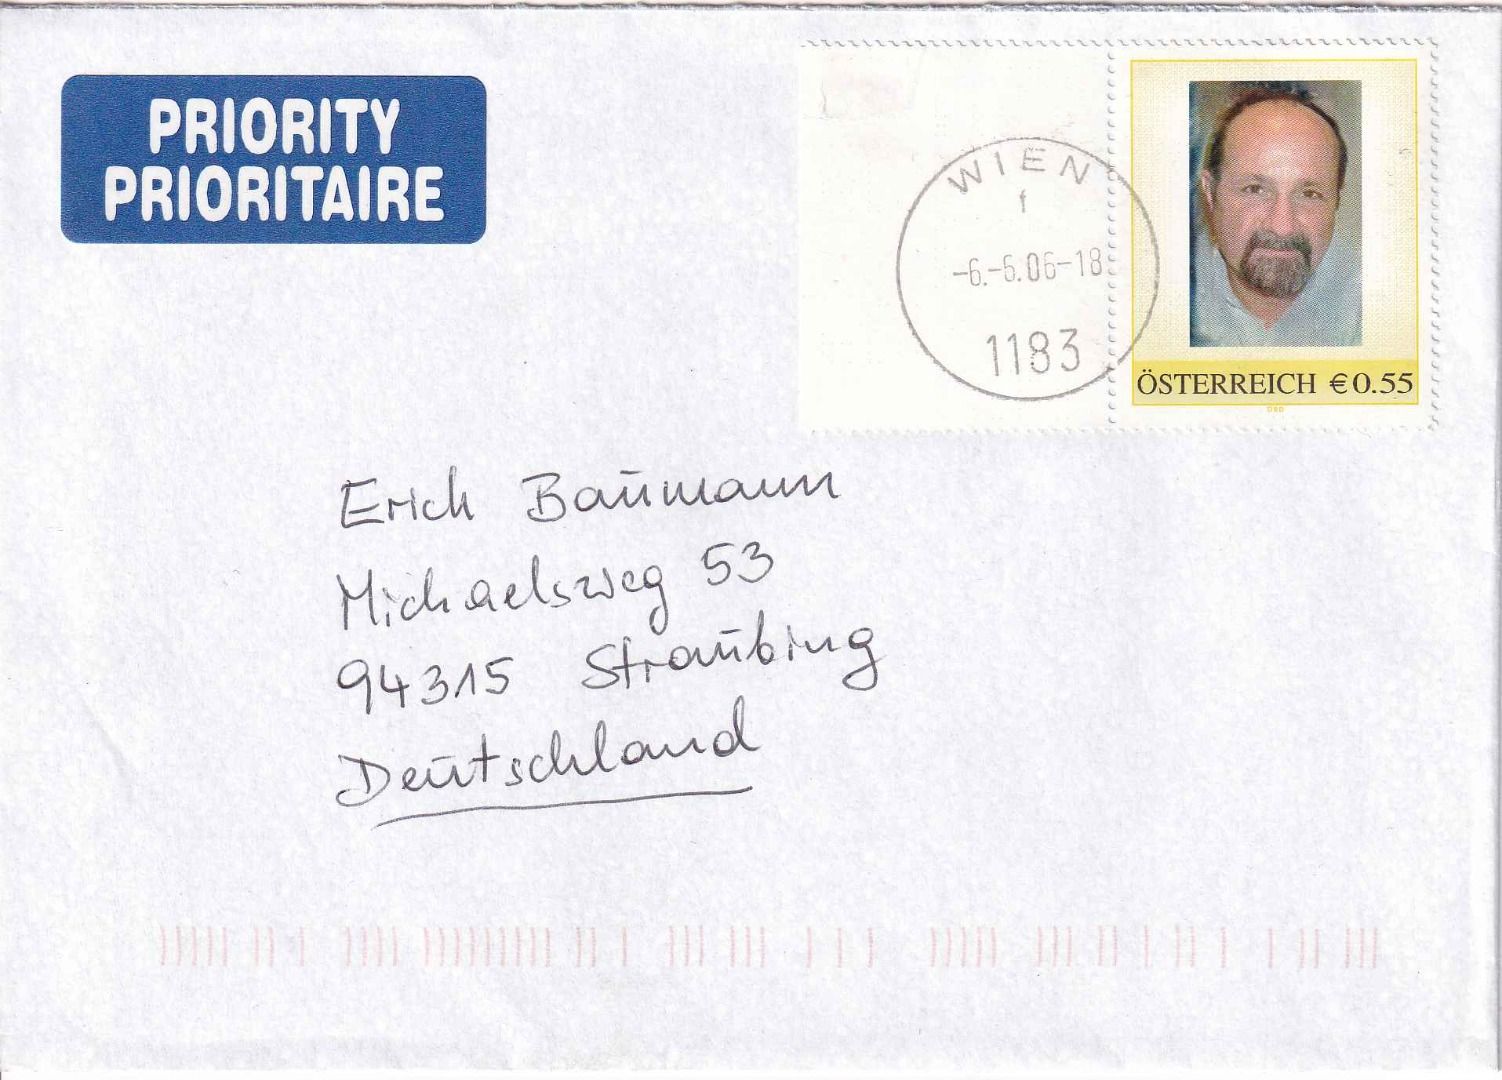 PRIORITY
PRIORITAIRE
WIEN
f
-6.-6.06-18
1183
ÖSTERREICH €0.55
Erich Baumann
Michaelsweg 53
94315 Straubing
Deutschland